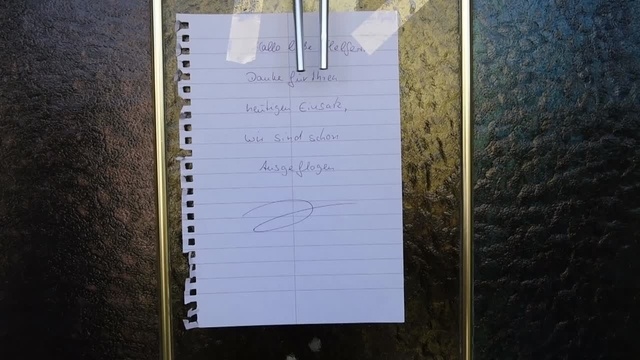 Hallo liebe Helfer
Danke für Ihren
heutigen Einsatz,
wir sind schon
Ausgeflogen